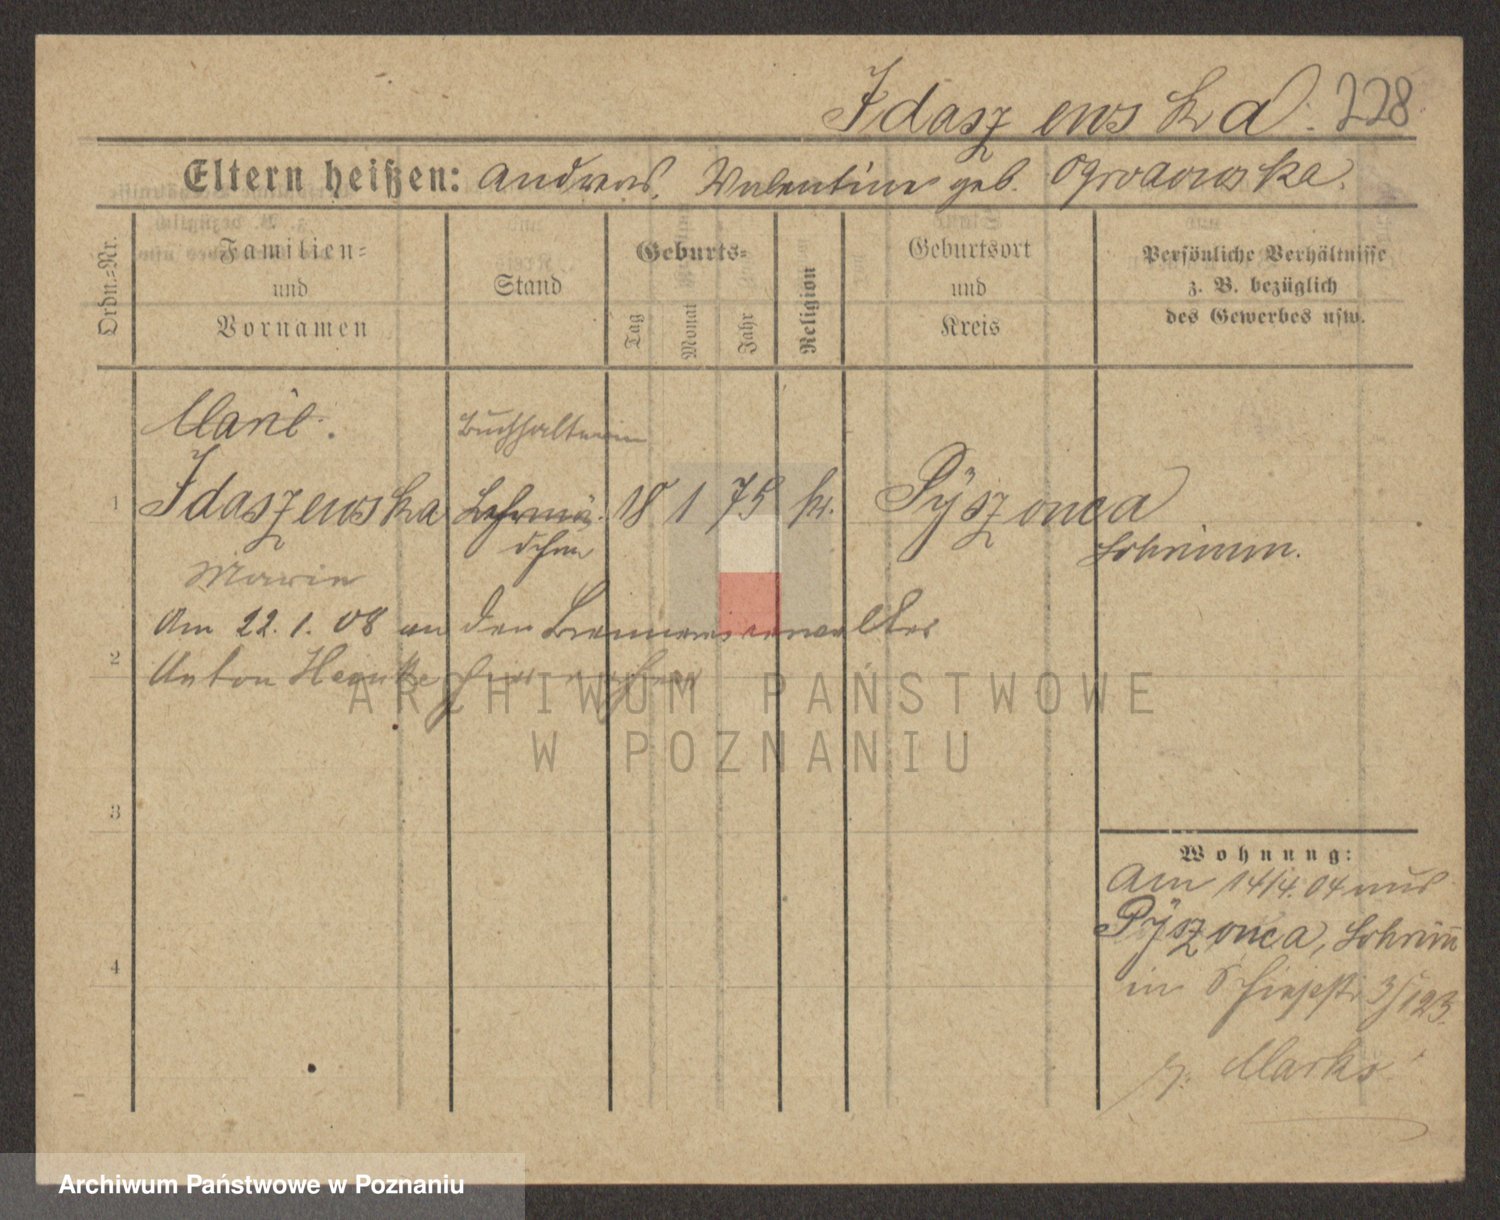 Idaszewska. 228
Eltern heißen: Andreas. Valentine geb. Ogrodowska.
Ordn.-Nr.
Familien- und Vornamen
Stand
Geburts-
Tag
Monat
Jahr
Religion
Geburtsort und Kreis
Persönliche Verhältnisse
z. B. bezüglich
des Gewerbes usw.
Buchhalterin
1 Idaszewska Lehrmä- 18 1 75 k. Pÿszonca
dchen Schrimm.
Marie
Am 22. 1. 08 an den Brennereiverwalter
2
Anton
3
Wohnung:
Am 14/4. 04 aus
Pÿszonca, Schrim̄
4
in
z. Marks
ARCHIWUM PAŃSTWOWE
W POZNANIU
Archiwum Państwowe w Poznaniu